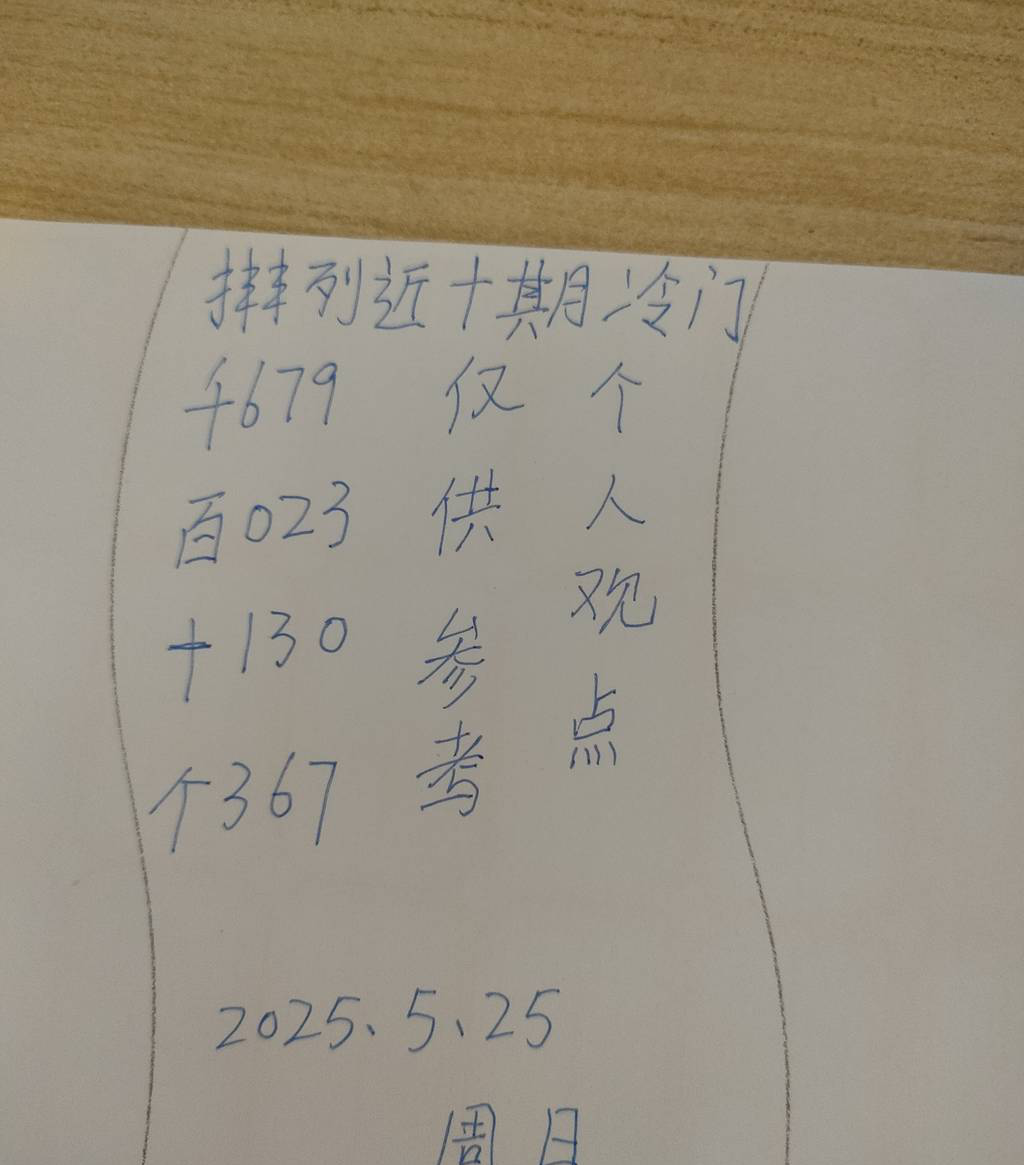 排列近十期冷门
千679
百023
十130
个367
仅供参考
个人观点
2025、5、25
周日